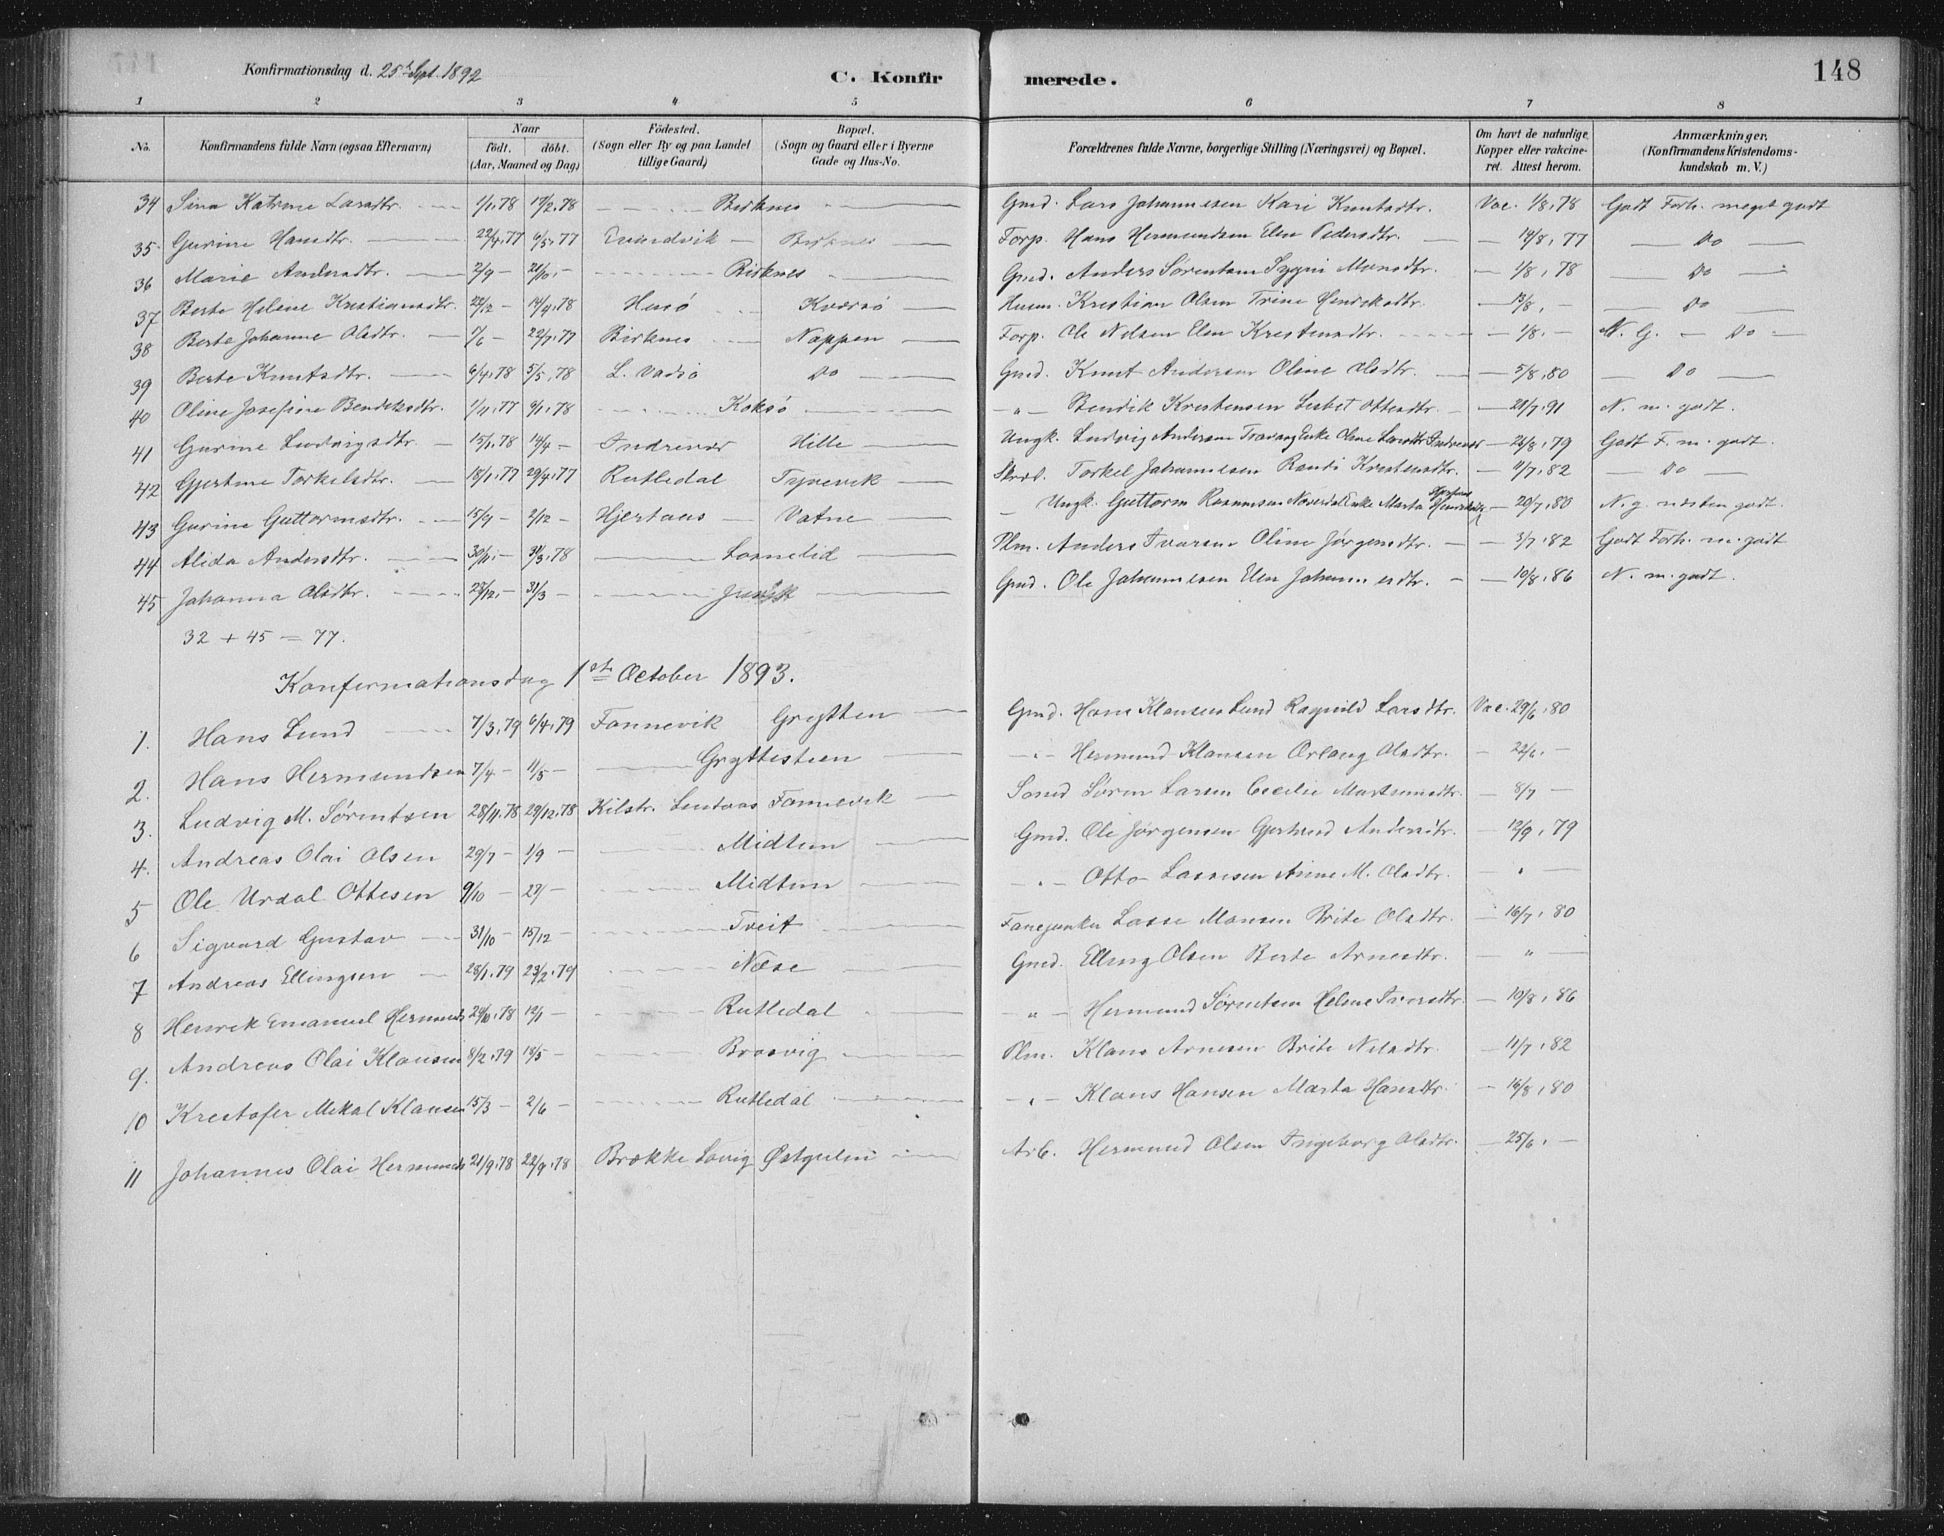 Konfirmationsdag d. 25de Sept. 1892 C. Konfirmerede. 148
1 2 3 4 5 6 7 8
No. Konfirmandens fulde Navn (ogsaa Efternavn) Naar födt. döbt. (Aar, Maaned og Dag) Födested. (Sogn eller By og paa Landet tillige Gaard) Bopæl. (Sogn og Gaard eller i Byerne Gade og Hus-No. Forældrenes fulde Navne, borgerlige Stilling (Næringsvei) og Bopæl. Om havt de naturlige Kopper eller vakcineret. Attest herom. Anmærkninger. (Konfirmandens Kristendomskundskab m. V.)
34 Sina Katrine Larsdtr. 1/1,78 17/2,78 Birknes Gmd. Lars Johannesen Kari Knutsdtr. Vac. 1/8,78 Godt Forh. meget godt
35 Gurine Hansdtr. 22/4,77 6/5,77 Birknes Forp. Hans Hermundsen Elen Pedersdtr. 14/8,77 Do
36 Marie Andersdtr. 2/9 21/10 Birknes Gmd. Anders Sørentsen Sygni Monsdtr. 1/8,78 Do
37 Berte Helene Kristiansdtr. 22/12 14/4,78 Husö Kværsö Husm. Kristian Olsen Trine Hendrksdtr. 13/8, Do
38 Berte Johanne Olsdtr. 7/6 22/7,77 Birknes Nappen Forp. Ole Nelsen Elen Krestensdtr. 1/8. N. G. Do
39 Berte Knutsdtr. 6/4,78 5/5,78 L. Vadsö Do Gmd. Knut Andersen Oline Olsdtr. 5/8,80 Do
40 Oline Josefine Bendeksdtr. 1/11,77 6/1,78 Koksö " Bendik Krestensen Lisbet Ottesdtr. 21/7,91 N. m. godt.
41 Gurine Ludvigsdtr. 15/1,78 14/4 Indrevær Hille Ungk. Ludvig Andersen Enke Oline Larsdtr Indrevær 26/8,79 Godt F. m. godt.
42 Gjertine Torkelsdtr. 18/1,77 29/4,77 Rutledal Tyvevik Skræd. Torkel Johannesen Randi Krestensdtr. 11/7,82 Do
43 Gurine Guttormsdtr. 15/9 2/12 Hjertaas Vatne Ungk. Guttorm Rasmussen Enke Marta 20/7,80 N. g. næsten godt.
44 Alida Andersdtr. 30/11. 31/3,78 Lonnelid Plm. Anders Ivarsen Oline Jørgensdtr. 3/7,82 Godt Forh. m. godt
45 Johanna Olsdtr. 23/12. 31/3 Gmd. Ole Johannesen Elen Johannesdtr. 10/8,86 N. m. godt.
32 + 45 = 77.
Konfirmationsdag 1ste October 1893.
1. Hans Lund 7/3,79 6/4,79 Fonnevik Grytten Gmd. Hans Klausen Lund Ragnild Larsdtr. Vac. 29/6,80
2. Hans Hermundsen 7/4 11/5 Gryttestien " Hermund Klausen Orlaug Olsdtr. 22/6.
3. Ludvig M. Sørentsen 28/11,78 29/12,78 Kilstr. Lindaas Fonnevik Søren Larsen Cecilie Martinusdtr. 8/7
4. Andreas Olai Olsen 29/7 1/9 Midtun Gmd. Ole Jørgensen Gjertrud Andersdtr. 12/9,79
5 Ole Urdal Ottesen 9/10 27/ Midtun " Otto Lassesen Anne M. Olsdtr. "
6 Sigvard Gustav 31/10 15/12 Tveit Fanejunker Lasse Monsen Brite Olsdtr. 16/7,80
7 Andreas Ellingsen 28/1,79 23/2,79 Næse Gmd. Elling Olsen Berte Arnesdtr. "
8 Henrek Emanuel Hermunds 24/10,78 12/1 Rutledal " Hermund Sørentsen Helene Ivarsdtr. 10/8,86
9. Andreas Olai Klausen 8/2,79 18/5 Brosvig Plm. Klaus Arnesen Brite Nelsdtr. 11/7,82
10 Krestofer Mekal Klausen 15/3 2/6 Rutledal " Klaus Hansen Marta Hansdtr. 16/8,80
11 Johannes Olai Hermunds 21/9,78 22/9,78 Brække Lavig Østgulen Arb. Hermund Olsen Ingeborg Olsdtr. 25/6.